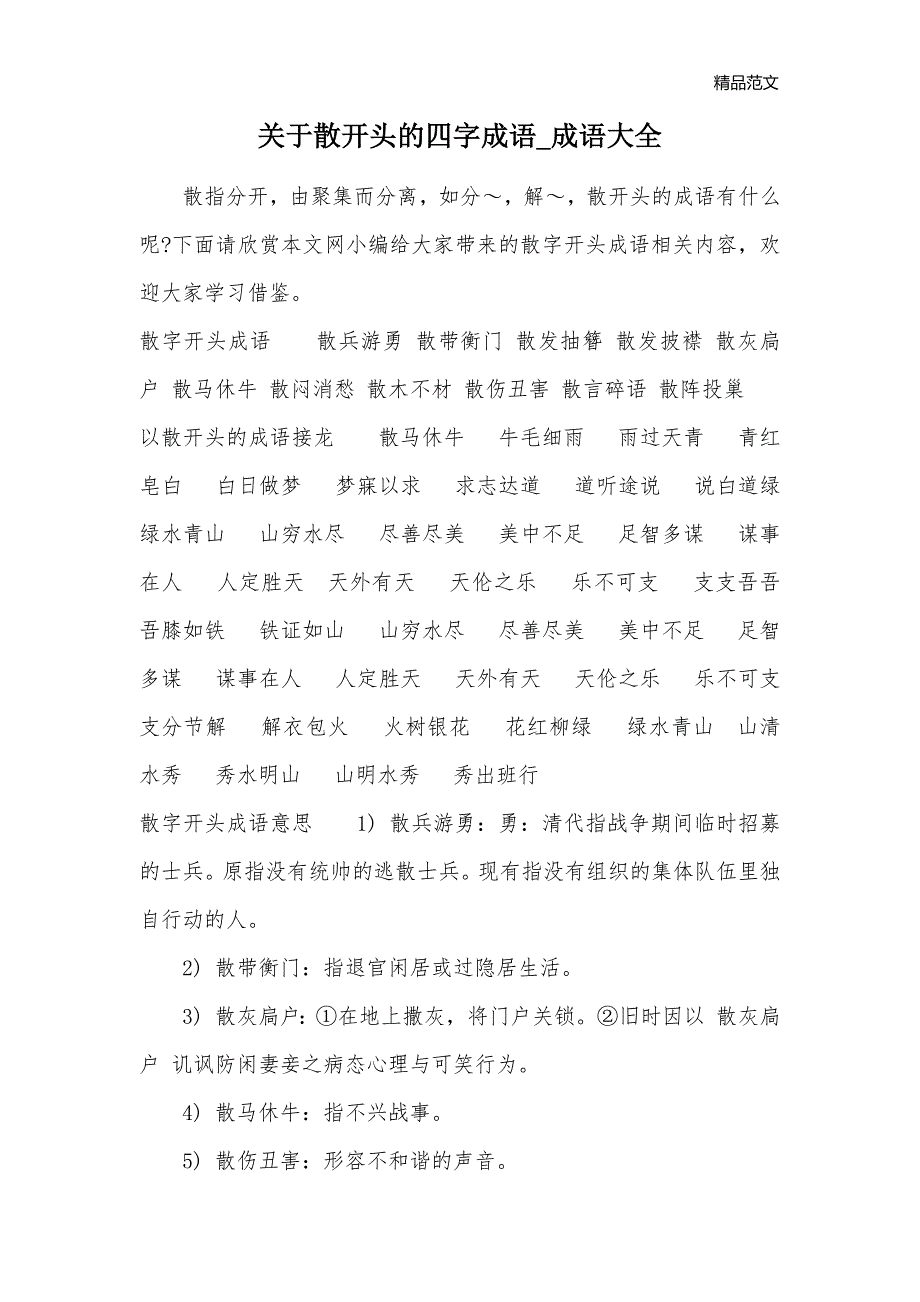 精品范文
关于散开头的四字成语_成语大全
散指分开，由聚集而分离，如分～，解～，散开头的成语有什么
呢?下面请欣赏本文网小编给大家带来的散字开头成语相关内容，欢
迎大家学习借鉴。
散字开头成语 散兵游勇 散带衡门 散发抽簪 散发披襟 散灰扃
户 散马休牛 散闷消愁 散木不材 散伤丑害 散言碎语 散阵投巢
以散开头的成语接龙 散马休牛 牛毛细雨 雨过天青 青红
皂白 白日做梦 梦寐以求 求志达道 道听途说 说白道绿
绿水青山 山穷水尽 尽善尽美 美中不足 足智多谋 谋事
在人 人定胜天 天外有天 天伦之乐 乐不可支 支支吾吾
吾膝如铁 铁证如山 山穷水尽 尽善尽美 美中不足 足智
多谋 谋事在人 人定胜天 天外有天 天伦之乐 乐不可支
支分节解 解衣包火 火树银花 花红柳绿 绿水青山 山清
水秀 秀水明山 山明水秀 秀出班行
散字开头成语意思 1) 散兵游勇：勇：清代指战争期间临时招募
的士兵。原指没有统帅的逃散士兵。现有指没有组织的集体队伍里独
自行动的人。
2) 散带衡门：指退官闲居或过隐居生活。
3) 散灰扃户：①在地上撒灰，将门户关锁。②旧时因以 散灰扃
户 讥讽防闲妻妾之病态心理与可笑行为。
4) 散马休牛：指不兴战事。
5) 散伤丑害：形容不和谐的声音。